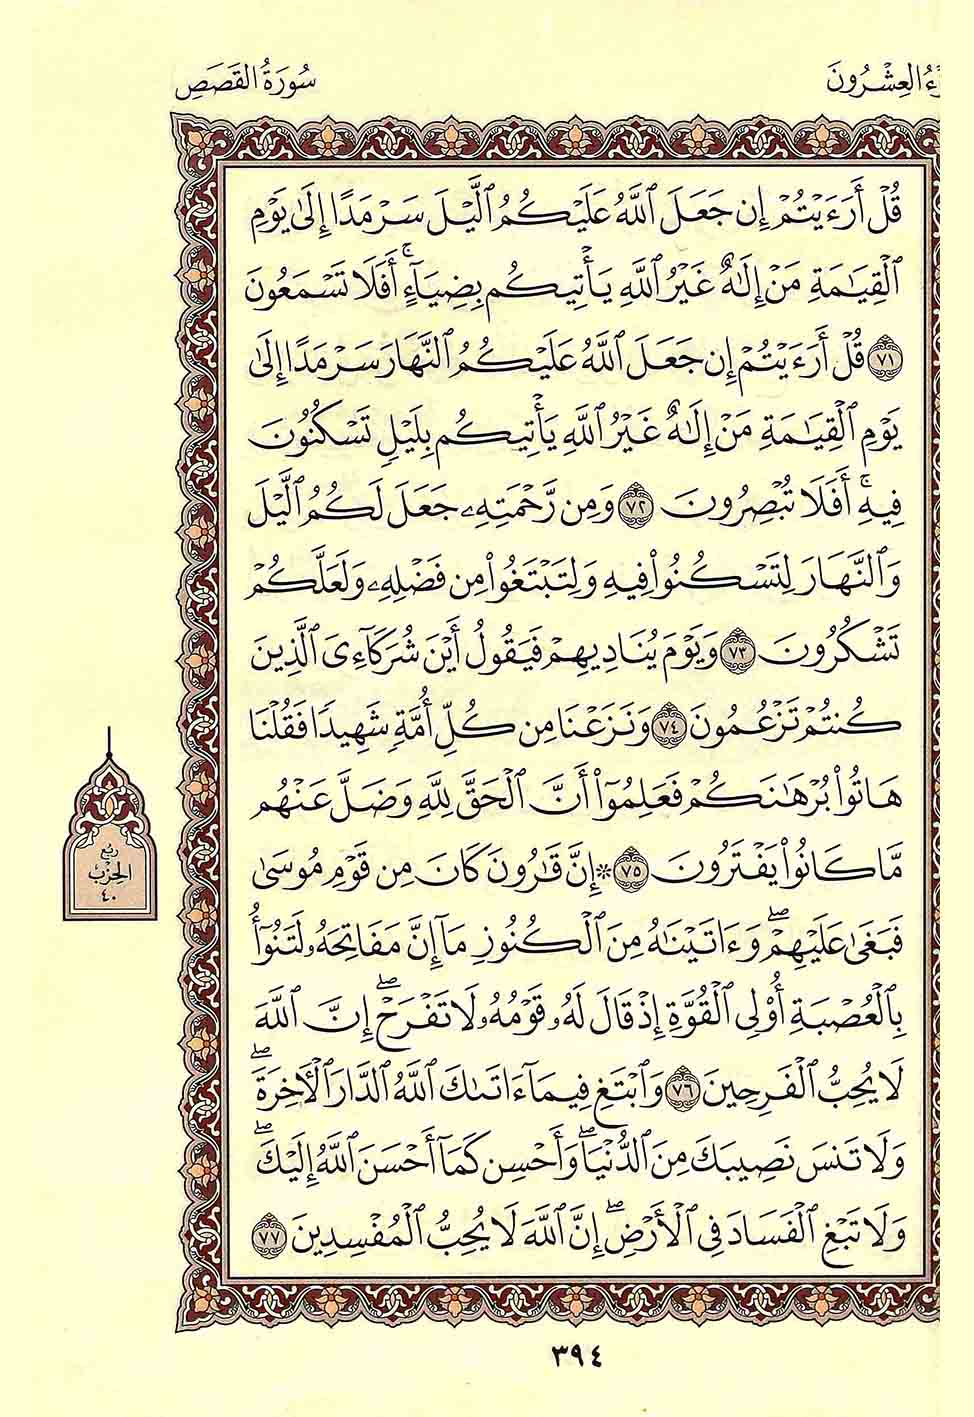 سُورَةُ القَصَصِ
زْءُ العِشْرُونَ
قُلْ أَرَءَيْتُمْ إِن جَعَلَ ٱللَّهُ عَلَيْكُمُ ٱلَّيْلَ سَرْمَدًا إِلَىٰ يَوْمِ
ٱلْقِيَـٰمَةِ مَنْ إِلَـٰهٌ غَيْرُ ٱللَّهِ يَأْتِيكُم بِضِيَآءٍ ۚ أَفَلَا تَسْمَعُونَ
٧١ قُلْ أَرَءَيْتُمْ إِن جَعَلَ ٱللَّهُ عَلَيْكُمُ ٱلنَّهَارَ سَرْمَدًا إِلَىٰ
يَوْمِ ٱلْقِيَـٰمَةِ مَنْ إِلَـٰهٌ غَيْرُ ٱللَّهِ يَأْتِيكُم بِلَيْلٍ تَسْكُنُونَ
فِيهِ ۚ أَفَلَا تُبْصِرُونَ ٧٢ وَمِن رَّحْمَتِهِۦ جَعَلَ لَكُمُ ٱلَّيْلَ
وَٱلنَّهَارَ لِتَسْكُنُوا۟ فِيهِ وَلِتَبْتَغُوا۟ مِن فَضْلِهِۦ وَلَعَلَّكُمْ
تَشْكُرُونَ ٧٣ وَيَوْمَ يُنَادِيهِمْ فَيَقُولُ أَيْنَ شُرَكَآءِىَ ٱلَّذِينَ
كُنتُمْ تَزْعُمُونَ ٧٤ وَنَزَعْنَا مِن كُلِّ أُمَّةٍ شَهِيدًا فَقُلْنَا
هَاتُوا۟ بُرْهَـٰنَكُمْ فَعَلِمُوٓا۟ أَنَّ ٱلْحَقَّ لِلَّهِ وَضَلَّ عَنْهُم
مَّا كَانُوا۟ يَفْتَرُونَ ٧٥ ۞ إِنَّ قَـٰرُونَ كَانَ مِن قَوْمِ مُوسَىٰ
فَبَغَىٰ عَلَيْهِمْ ۖ وَءَاتَيْنَـٰهُ مِنَ ٱلْكُنُوزِ مَآ إِنَّ مَفَاتِحَهُۥ لَتَنُوٓأُ
بِٱلْعُصْبَةِ أُو۟لِى ٱلْقُوَّةِ إِذْ قَالَ لَهُۥ قَوْمُهُۥ لَا تَفْرَحْ ۖ إِنَّ ٱللَّهَ
لَا يُحِبُّ ٱلْفَرِحِينَ ٧٦ وَٱبْتَغِ فِيمَآ ءَاتَىٰكَ ٱللَّهُ ٱلدَّارَ ٱلْـَٔاخِرَةَ ۖ
وَلَا تَنسَ نَصِيبَكَ مِنَ ٱلدُّنْيَا ۖ وَأَحْسِن كَمَآ أَحْسَنَ ٱللَّهُ إِلَيْكَ ۖ
وَلَا تَبْغِ ٱلْفَسَادَ فِى ٱلْأَرْضِ ۖ إِنَّ ٱللَّهَ لَا يُحِبُّ ٱلْمُفْسِدِينَ ٧٧
رُبُع
الحِزْب
٤٠
٣٩٤